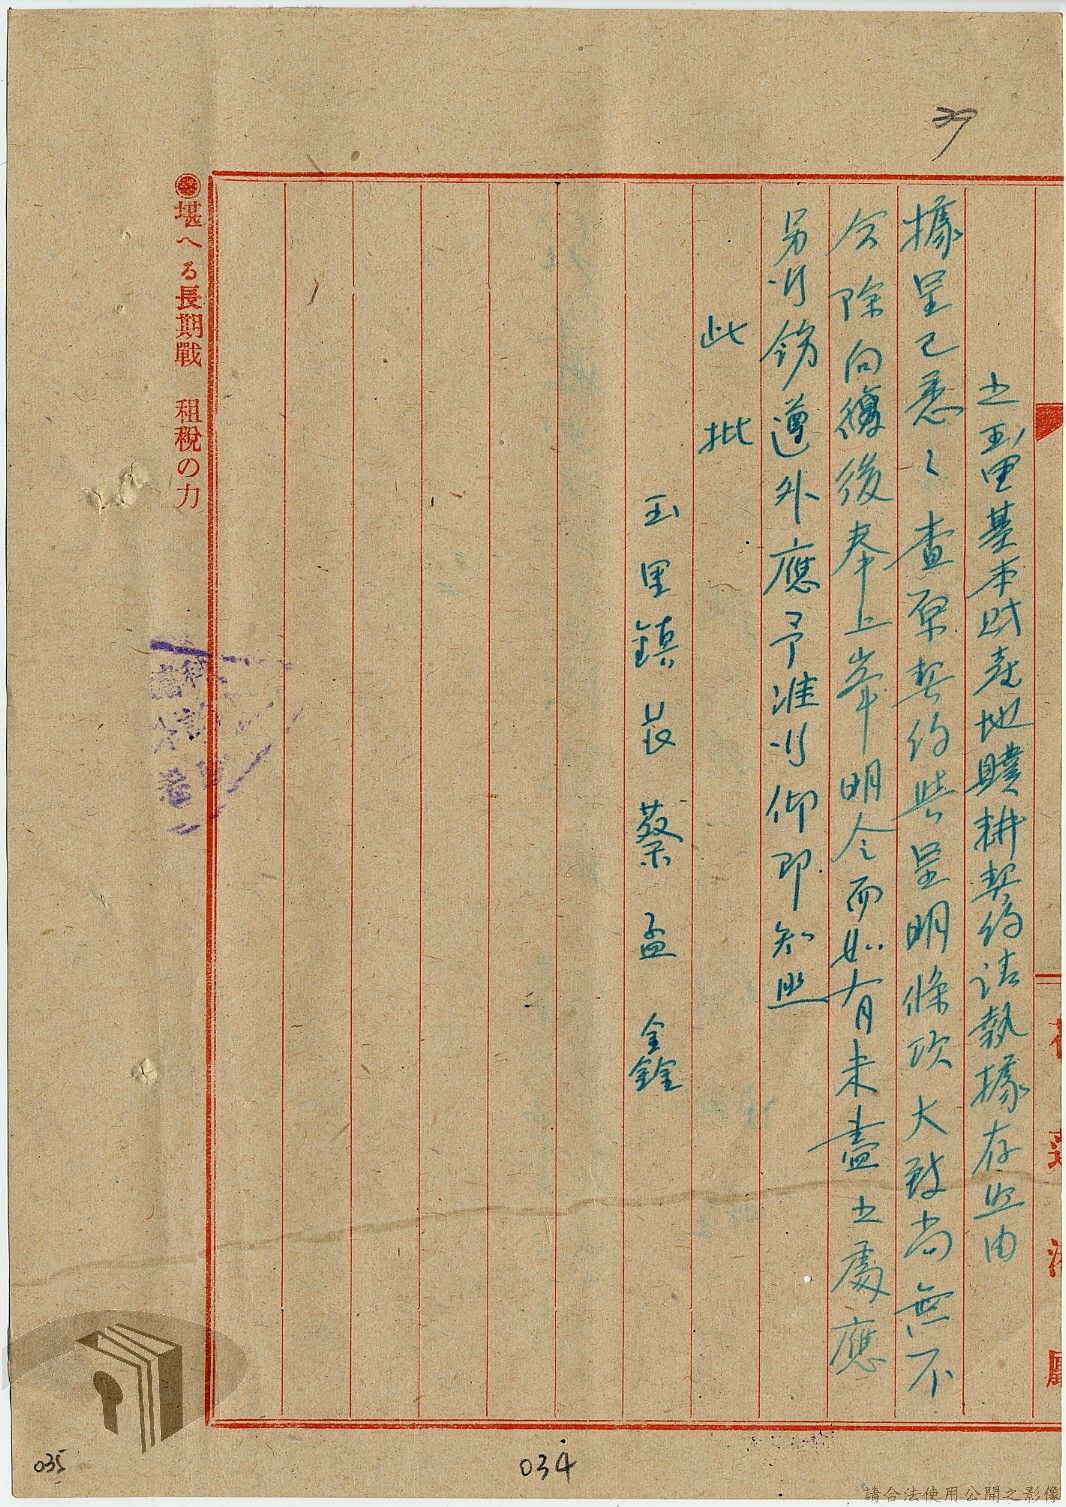 39
之玉里基本財產地贌耕契約請執據存照由
據呈已悉〻查原契約與呈明條項大致尚無不
合除向後奉上峯明令而如有未盡之處應
另行飭遵外應予准行仰即知照
此批
玉里鎮長蔡孟鑫
堪へる長期戰 租稅の力
034
035
請合法使用公開之影像